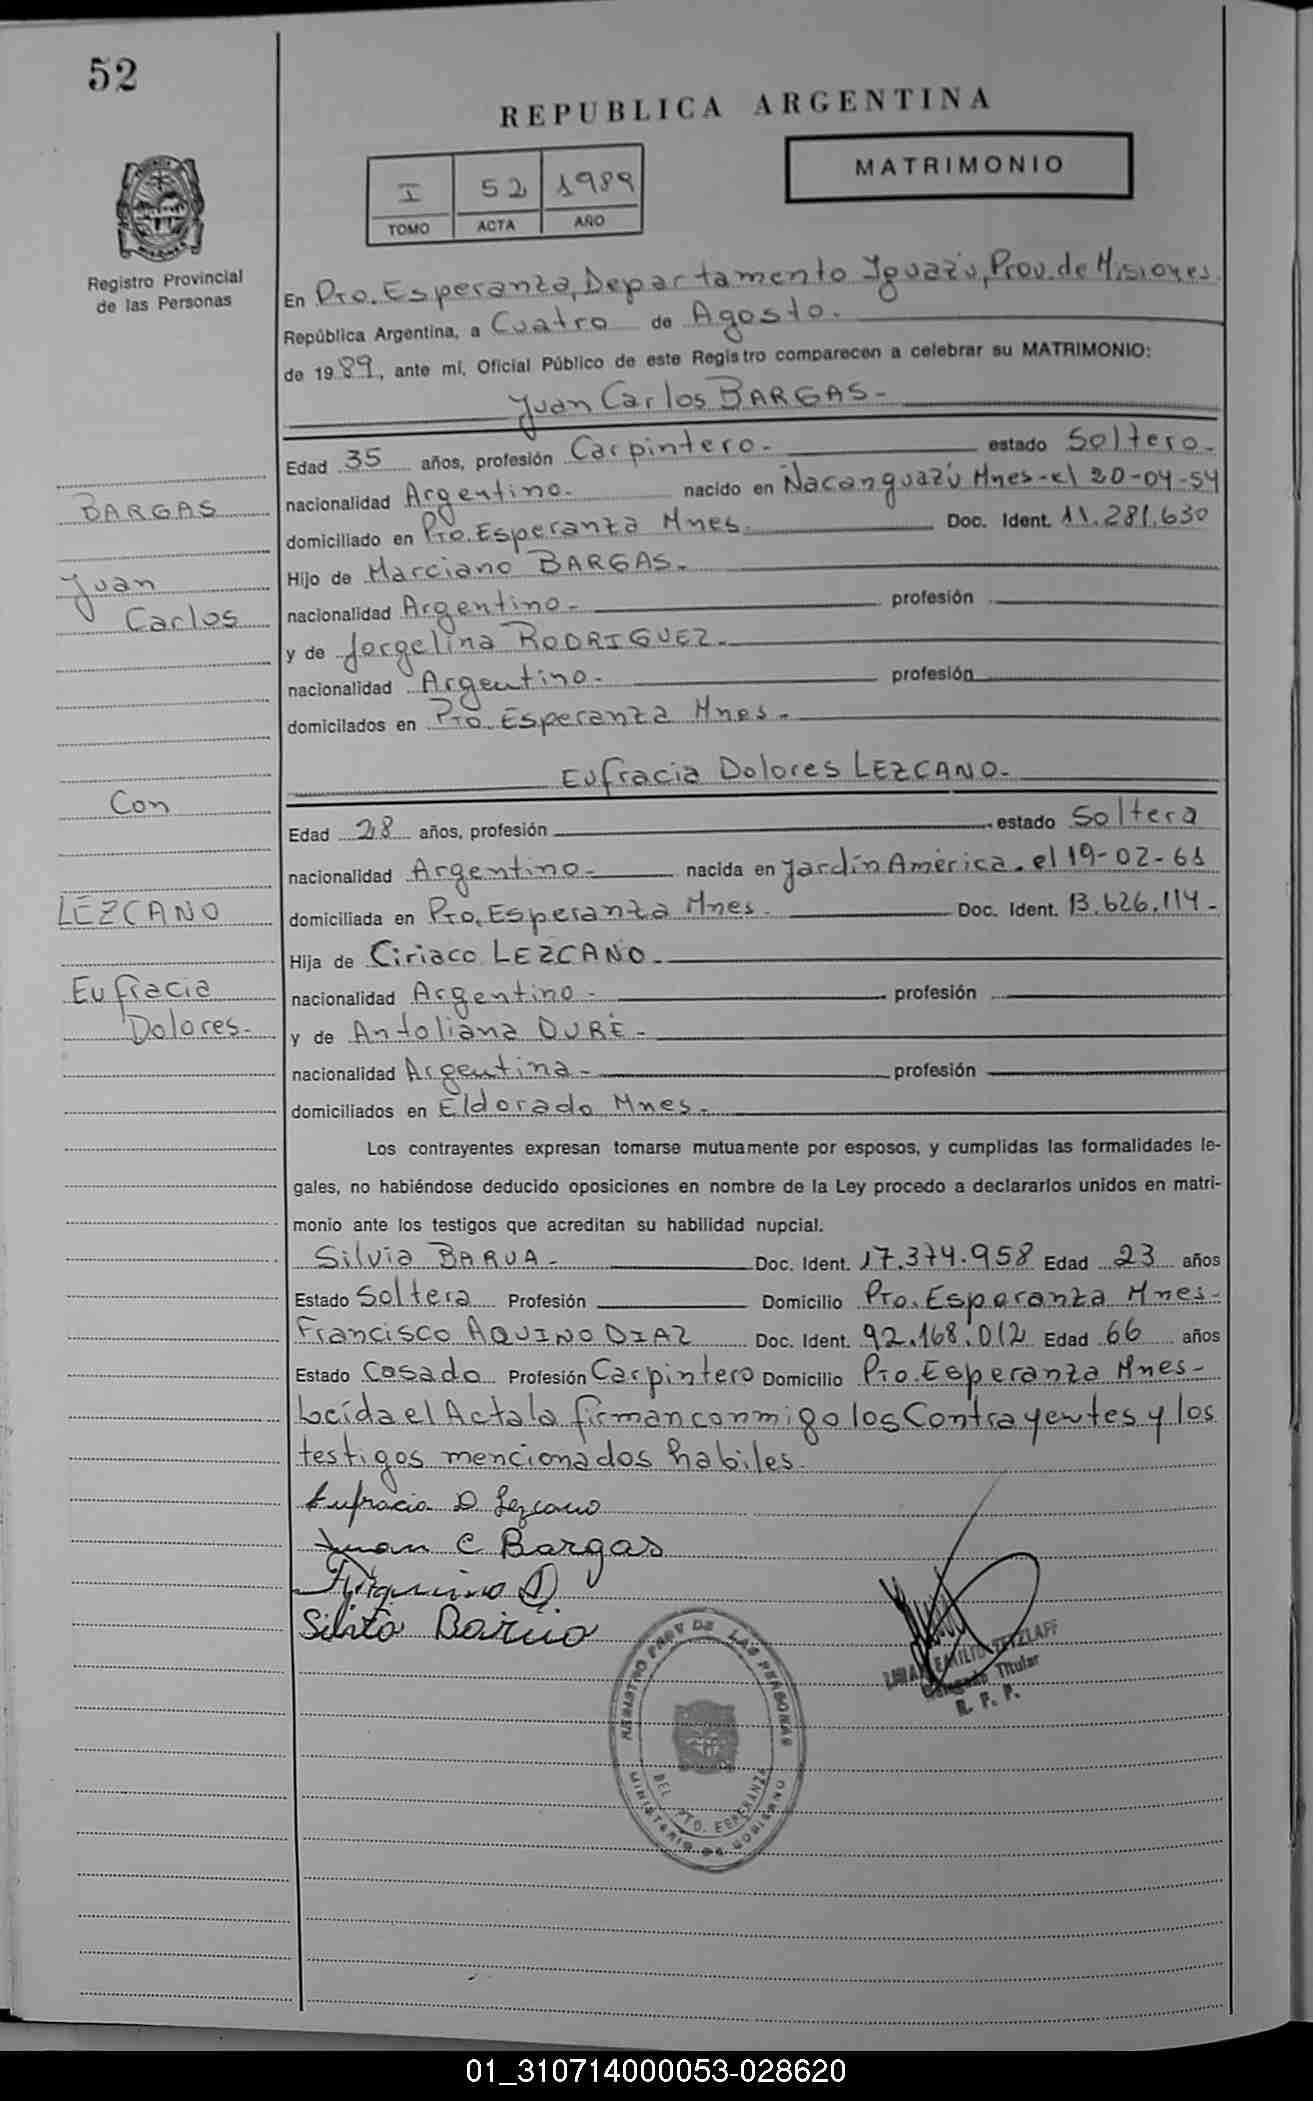 52
REPUBLICA ARGENTINA
MATRIMONIO
I 52 1989
TOMO ACTA AÑO
Registro Provincial
de las Personas
En Pto. Esperanza, Departamento Yguazú, Prov. de Misiones.
República Argentina, a Cuatro de Agosto.
de 1989, ante mí, Oficial Público de este Registro comparecen a celebrar su MATRIMONIO:
Juan Carlos BARGAS-
Edad 35 años, profesión Carpintero. estado Soltero.
nacionalidad Argentino. nacido en Ñacanguazú Mnes-el 20-04-54
domiciliado en Pto. Esperanza Mnes. Doc. Ident. 11.281.630
Hijo de Marciano BARGAS.
nacionalidad Argentino- profesión
y de Jorgelina RODRIGUEZ.
nacionalidad Argentino. profesión
domicilados en Pto. Esperanza Mnes.
BARGAS
Juan
Carlos
Con
LEZCANO
Eufracia
Dolores.
Eufracia Dolores LEZCANO.
Edad 28 años, profesión estado Soltera
nacionalidad Argentino. nacida en Jardín América. el 19-02-61
domiciliada en Pto. Esperanza Mnes. Doc. Ident. 13.626.114-
Hija de Ciriaco LEZCANO.
nacionalidad Argentino- profesión
y de Antoliana DURÉ-
nacionalidad Argentina- profesión
domiciliados en Eldorado Mnes.
Los contrayentes expresan tomarse mutuamente por esposos, y cumplidas las formalidades le-
gales, no habiéndose deducido oposiciones en nombre de la Ley procedo a declararlos unidos en matri-
monio ante los testigos que acreditan su habilidad nupcial.
Silvia BARUA- Doc. Ident. 17.374.958 Edad 23 años
Estado Soltera Profesión Domicilio Pto. Esperanza Mnes-
Francisco AQUINO DIAZ Doc. Ident. 92.168.012 Edad 66 años
Estado Casado Profesión Carpintero Domicilio Pto. Esperanza Mnes-
Leída el Acta la firman conmigo los Contrayentes y los
testigos mencionados habiles.
Eufracia D. Lezcano
Juan C Bargas
EMILIO TETZLAFF
Delegado Titular
R. P. P.
REGISTRO PROV DE LAS PERSONAS
DEL. PTO. ESPERANZA
MINISTERIO DE GOBIERNO
01_310714000053-028620